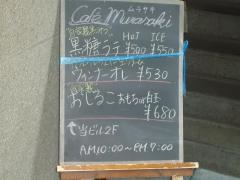 ムラサキ
Cafe Murasaki
HOT ICE
黒糖ラテ ¥500 ¥550
ウィンナーオレ ¥530
自家製
おしるこ おもちor白玉
¥680
↑当ビル2F
AM10:00~PM7:00